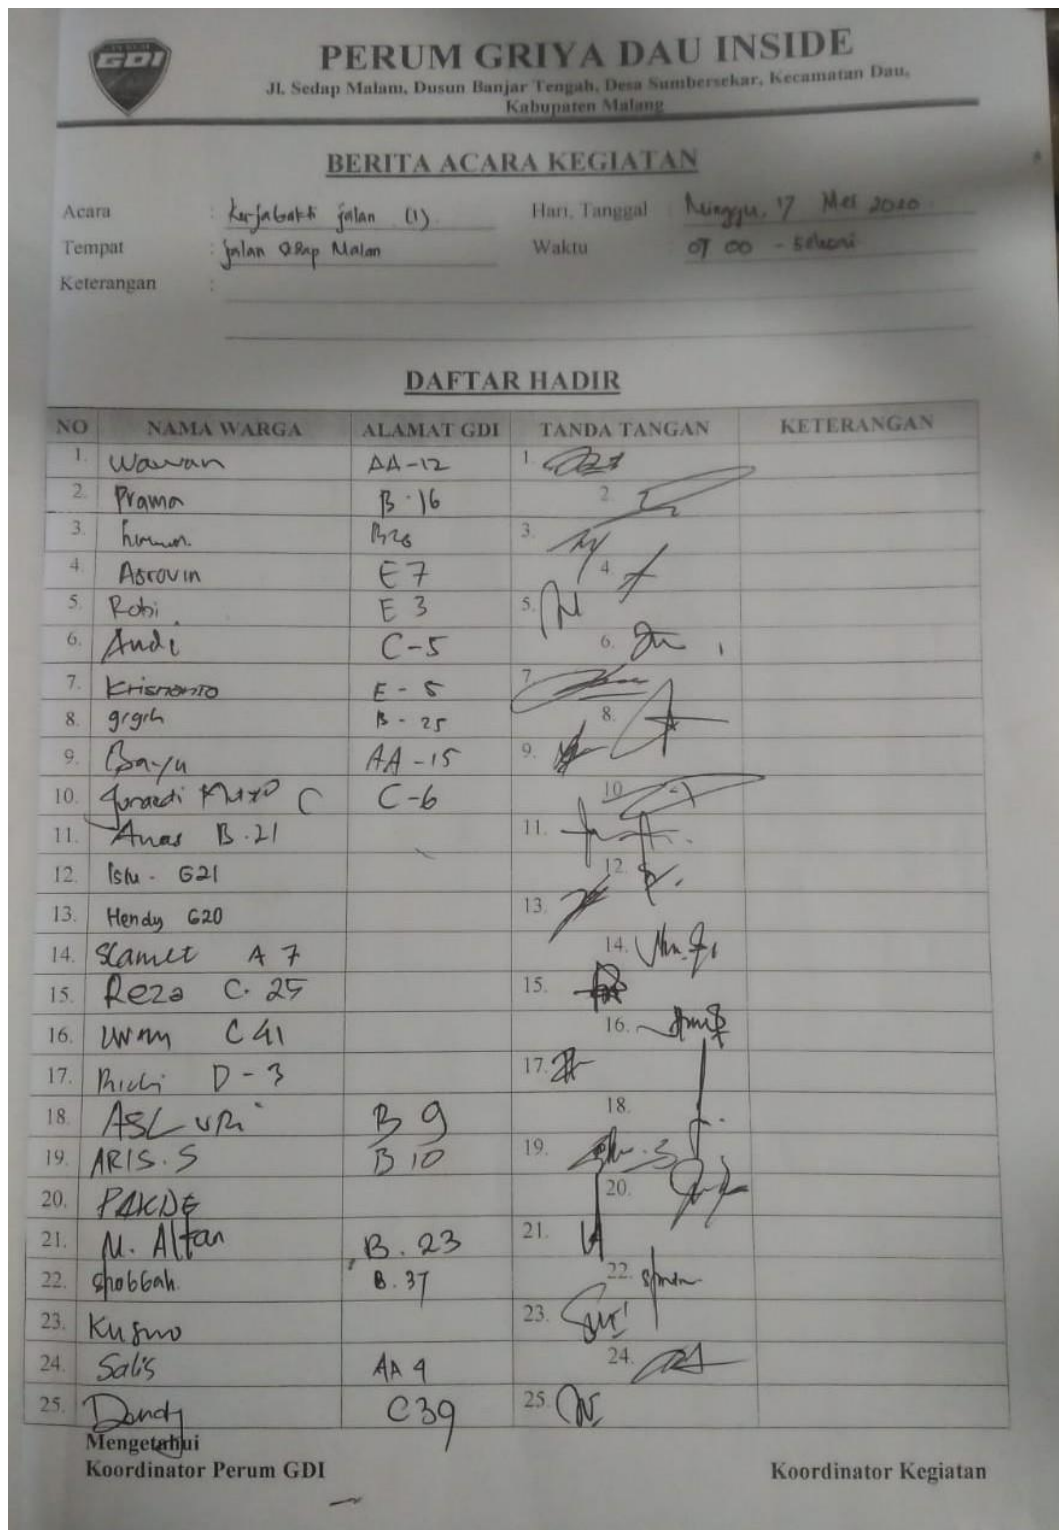 GDI
PERUM GRIYA DAU INSIDE
Jl. Sedap Malam, Dusun Banjar Tengah, Desa Sumbersekar, Kecamatan Dau,
Kabupaten Malang
BERITA ACARA KEGIATAN
Acara : Kerjabakti jalan (1) Hari, Tanggal Minggu, 17 Mei 2020
Tempat : Jalan Malam Waktu 07 00 -
Keterangan :
DAFTAR HADIR
NO NAMA WARGA ALAMAT GDI TANDA TANGAN KETERANGAN
1. Wawan AA-12 1.
2. Prama B-16 2.
3. 3.
4. Asrovin E7 4.
5. Robi E 3 5.
6. Andi C-5 6.
7. Krisnanto E-5 7.
8. B-25 8.
9. Bayu AA-15 9.
10. Junaedi C C-6 10.
11. Anas B.21 11.
12. G21 12.
13. Hendy G20 13.
14. Slamet A 7 14.
15. Reza C. 25 15.
16. C 41 16.
17. D-3 17.
18. B 9 18.
19. ARIS.S B 10 19.
20. PAKDE 20.
21. M. Alfan B. 23 21.
22. B.37 22.
23. Kusno 23.
24. Salis AA 24.
25. Dandy C39 25.
Mengetahui
Koordinator Perum GDI Koordinator Kegiatan